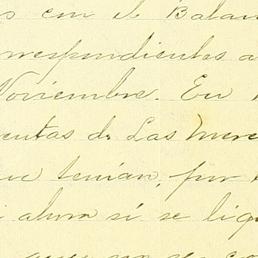 s con el Balan
rrespondientes a
Noviembre. En
entas de Las Merc
ue tenian, por
i ahora si se liq